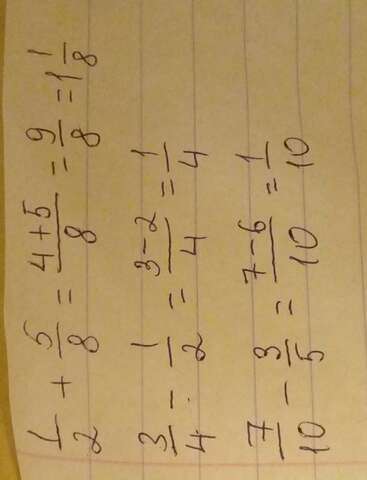 1/2 + 5/8 = 4+5/8 = 9/8 = 1 1/8
3/4 - 1/2 = 3-2/4 = 1/4
7/10 - 3/5 = 7-6/10 = 1/10